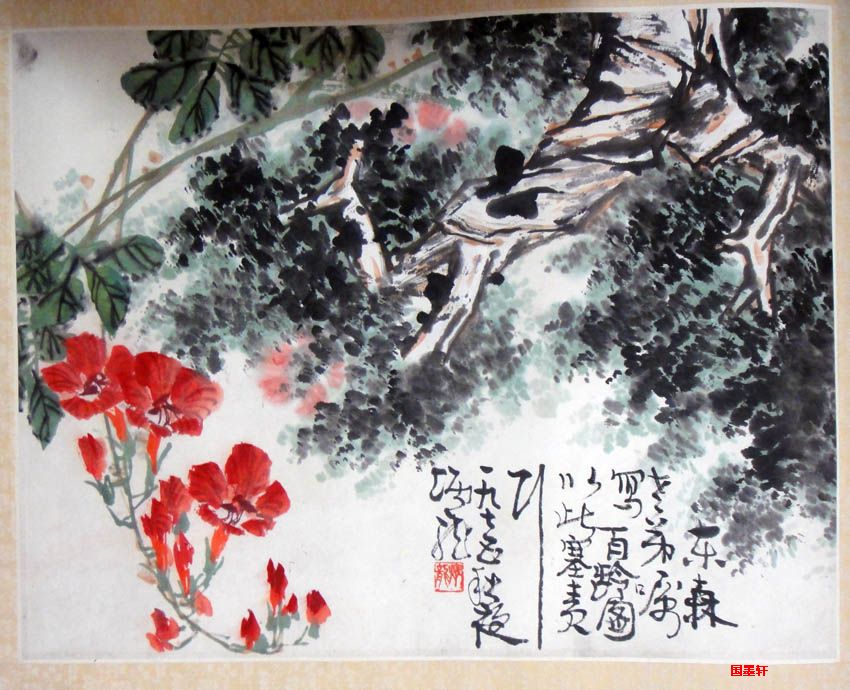 东森
老弟嘱
写百龄图
以此塞责
一九七五秋夜
炳龙
国墨轩